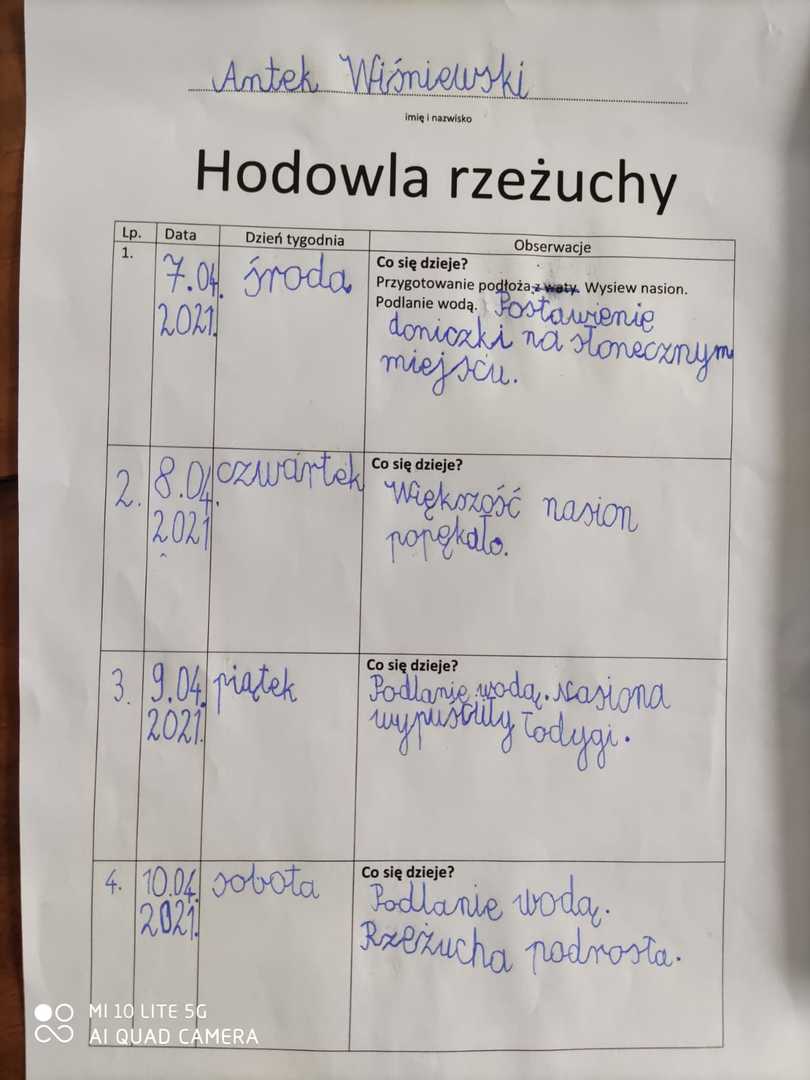 Antek Wiśniewski
imię i nazwisko
Hodowla rzeżuchy
Lp. Data Dzień tygodnia Obserwacje
1. 7.04. 2021. środa
Co się dzieje?
Przygotowanie podłoża z waty. Wysiew nasion.
Podlanie wodą. Postawienie
doniczki na słonecznym
miejscu.
2. 8.04. 2021 czwartek
Co się dzieje?
Większość nasion
popękało.
3. 9.04. 2021. piątek
Co się dzieje?
Podlanie wodą. Nasiona
wypuściły łodygi.
4. 10.04. 2021. sobota
Co się dzieje?
Podlanie wodą.
Rzeżucha podrosła.
MI 10 LITE 5G
AI QUAD CAMERA